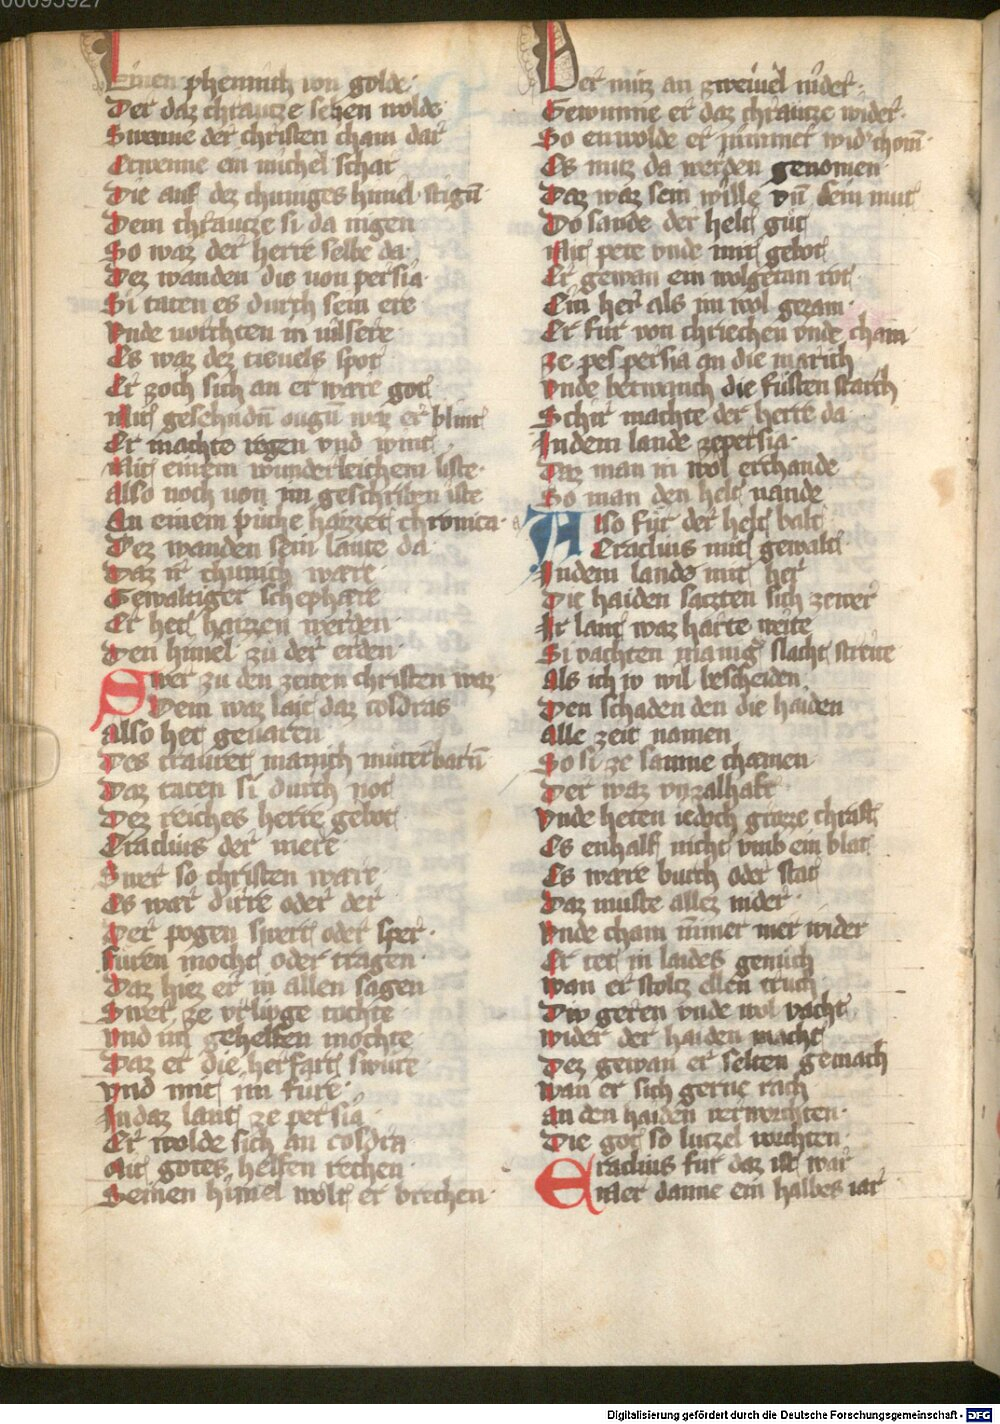 00095927
Einen phennich von golde
Der daz chrautze sehen wolde
Swenne der christen cham dar
Etwenne ein michel schar
Die auf dez chuniges himel stigū
Dem chrautze si da nigen
So waz der herre selbe da
Dez wanden die von persia
Si taten es durch sein ere
Vnde vorchten in
Es waz dez tieuels spot
Er zoch sich an er ware got
Mit gesehndū ougū waz er blint
Er machte regen vnd wint
Mit einem wunderleichem liste
Also noch von im geschriben iste
An einem puche haizzet chronica
Dez wanden sein laute da
Daz ir chunich ware
Gewaltiger schephare
Er het haizzen werden
Den himel zu der erden
Swer zu den zeiten christen waz
Dem waz lait daz cosdras
Also het geuaren
Des trauret manich muterbarn
Daz taten si durch not
Dez reiches herre gebot
Eraclius der mere
Swer so christen ware
Es war dirre oder der
Der pogen swert oder sper
Furen mocht oder tragen
Daz hiez er in allen sagen
Swer ze vrlivge tochte
Vnd im gehelfen mochte
Daz er die herfart swure
Vnd mit im fure
In daz lant ze persia
Er wolde sich an cosdra
Mit gotes helfen rechen
Seinen himel wolt er brechen
Der muz an zweiuel nider
Gewunne er daz chrautze wider
So enwolde er nimmer wid' chom
Es muz da werden genomen
Daz waz sein wille vn̄ sein mut
Do sande der helt gut
Mit pete vnde mit gebot
Er gewan ein wolgetan rot
Ein her als im wol gezam
Er fur von chriechen vnde cham
ze pes persia an die march
Vnde betwanch die fursten starch
Schir machte der herre da
In dem lande ze persia
Daz man in wol erchande
So man den helt nande
Also fur der helt balt
Eraclius mit gewalt
In dem lande mit her
Die haiden satzten sich ze wer
Ir lant waz harte weite
Si vachten manig slacht streite
Als ich iv wil bescheiden
Den schaden den die haiden
Alle zeit namen
So si ze samne chamen
Der waz vnzalhaft
Vnde heten iedoch grozze chraft
Es enhalf nicht vmb ein blat
Es ware burch oder stat
Daz muste allez nider
Vnde cham immer mer wider
Er tet in laides genuch
Wan er stoltz ellen truch
Div geren vnde wol vacht
Wider der haiden macht
Dez gewan er selten gemach
Wan er sich gerne rach
An den haiden verworchten
Die got so lutzel vorchten
Eraclius fur daz ist war
Mer danne ein halbes iar
Digitalisierung gefördert durch die Deutsche Forschungsgemeinschaft - DFG